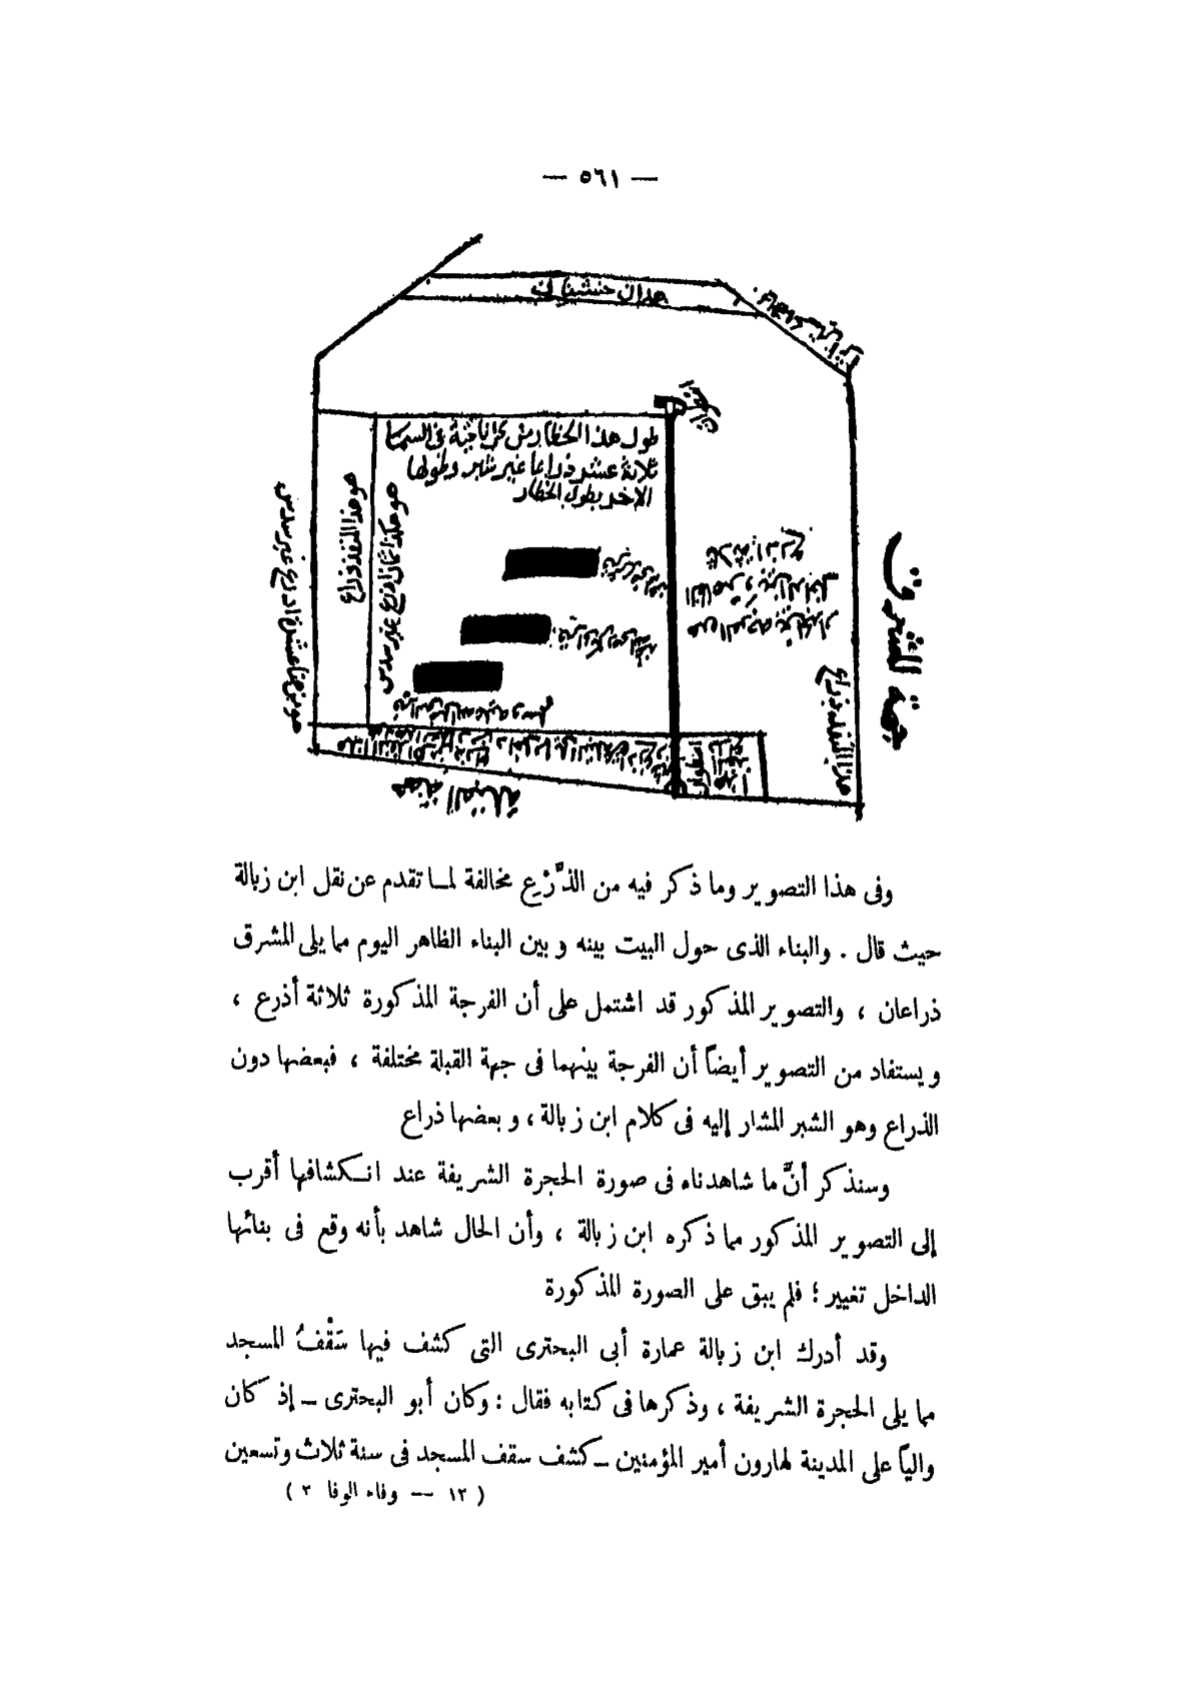 — ٥٦١ —
هذان خشبتان
طول هذا الحظار من كل ناحية في السما
ثلاثة عشر ذراعا غير شبر وطولها
الاخر بطول الحظار
هو هذا المنفذ ذراع
هو هكذا ثمان اذرع غير سدس
غير سدس
جهة المشرق
جهة القبلة
وفى هذا التصوير وما ذكر فيه من الذَّرْعِ مخالفة لمـا تقدم عن نقل ابن زبالة
حيث قال . والبناء الذى حول البيت بينه وبين البناء الظاهر اليوم مما يلى المشرق
ذراعان ، والتصوير المذكور قد اشتمل على أن الفرجة المذكورة ثلاثة أذرع ،
ويستفاد من التصوير أيضاً أن الفرجة بينهما فى جهة القبلة مختلفة ، فبعضها دون
الذراع وهو الشبر المشار إليه فى كلام ابن زبالة ، وبعضها ذراع
وسنذكر أنَّ ما شاهدناه فى صورة الحجرة الشريفة عند انـكشافها أقرب
إلى التصوير المذكور مما ذكره ابن زبالة ، وأن الحال شاهد بأنه وقع فى بنائها
الداخل تغيير ؛ فلم يبق على الصورة المذكورة
وقد أدرك ابن زبالة عمارة أبى البحترى التى كشف فيها سَقْفُ المسجد
مما يلى الحجرة الشريفة ، وذكرها فى كتابه فقال : وكان أبو البحترى ــ إذ كان
والياً على المدينة لهارون أمير المؤمنين ــ كشف سقف المسجد فى سنة ثلاث وتسعين
( ١٢ -- وفاء الوفا ٢ )